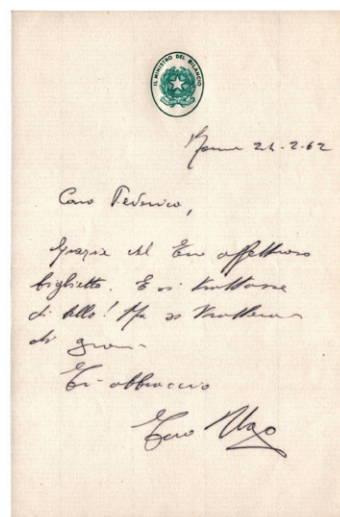 IL MINISTRO DEL BILANCIO
Roma 24-2-62
Caro Federico,
Grazie del tuo affettuoso
biglietto. E si trattasse
di! Ma si
di
Ti abbraccio
Tuo Ugo